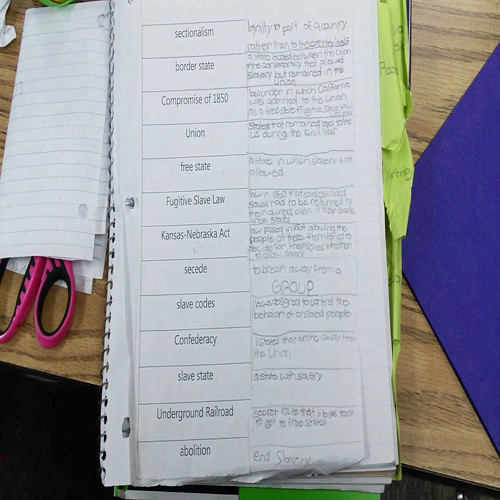 sectionalism
loyalty to part of a country
rather than to the country itself
border state
a state located between the Union
the confederacy that allowed
slavery but remained in the
Union
Compromise of 1850
law under in which California
was admitted to the Union
as a free state Fugitive Slave Law
Union
States that remained loyal to the
US during the Civil War
free state
a state in which slavery is not
allowed
Fugitive Slave Law
law in 1850 that said escaped
slaves had to be returned to
their owners even if they reach
free states
Kansas-Nebraska Act
law passed in 1854 allowing the
people of these territories to
decide for themselves whether
to allow slavery
secede
to break away from a
GROUP
slave codes
laws designed to control the
behavior of enslaved people
Confederacy
11 states that broke away from
the Union
slave state
a state with slavery
Underground Railroad
secret route that slaves took
to get to free states
abolition
end Slavery